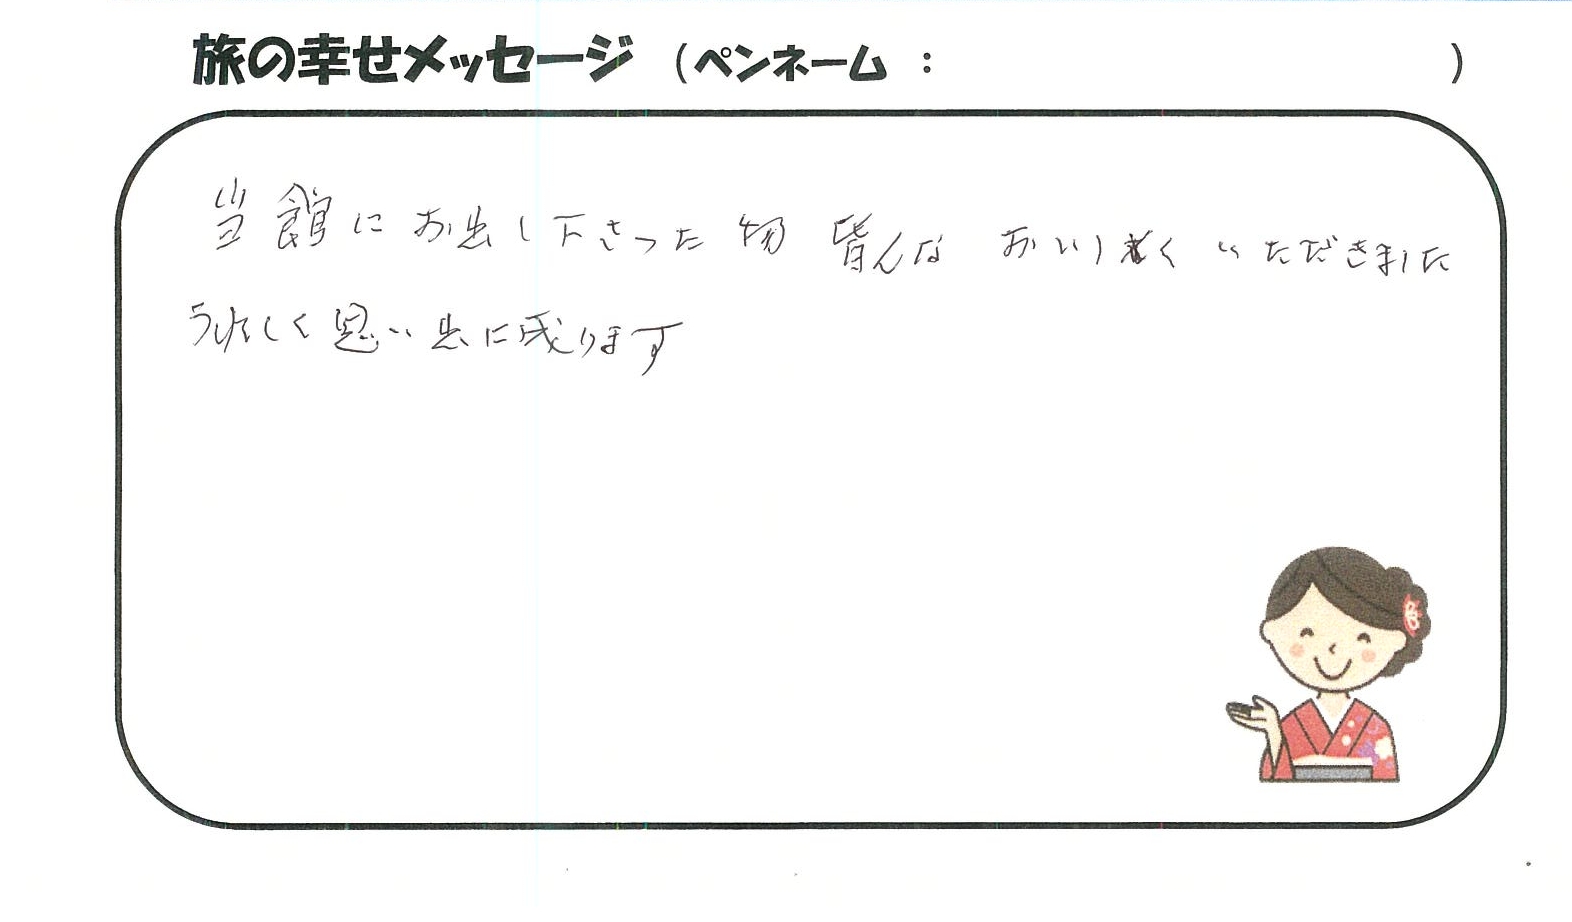 旅の幸せメッセージ (ペンネーム : )
当館にお出し下さった物 皆んな おいしく いただきました
うれしく思い出に成ります